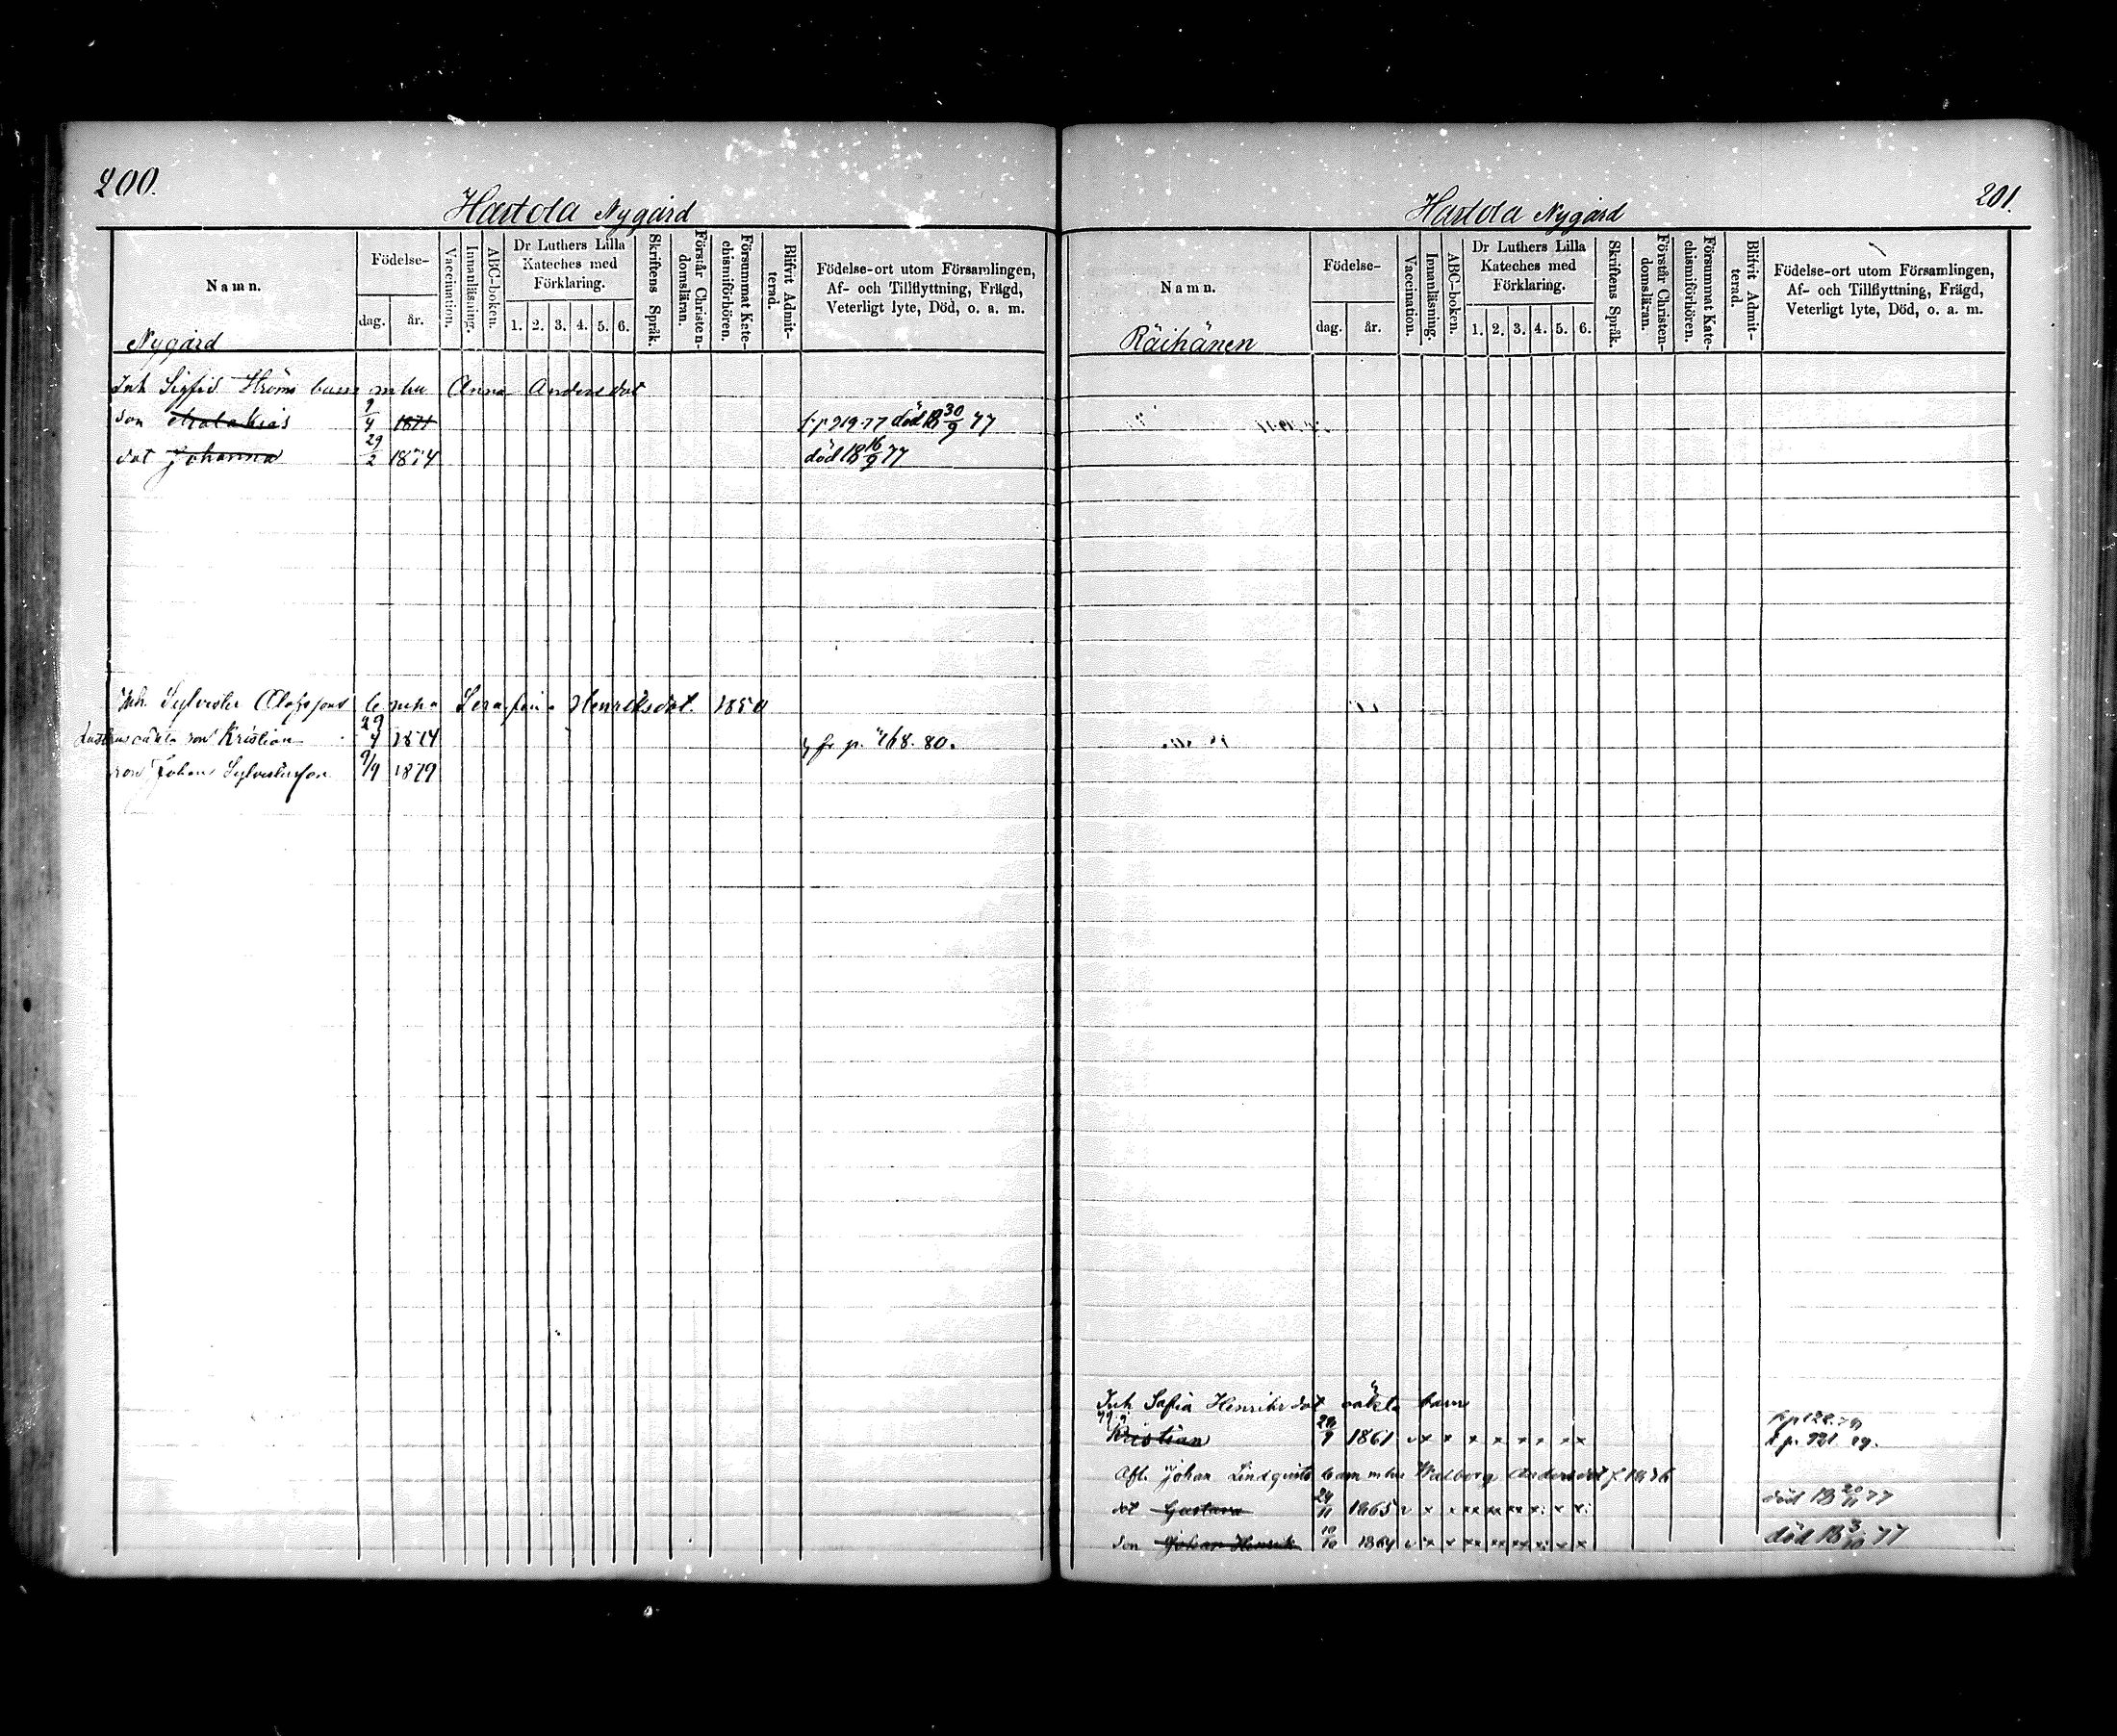 200.
Hartola Nygård
Namn.
Födelse-
dag. år.
Vaccination.
Innanläsning.
ABC-boken.
Dr Luthers Lilla
Kateches med
Förklaring.
1. 2. 3. 4. 5. 6.
Skriftens Språk.
Förstår Christen-
domsläran.
Försummat Kate-
chismiförhören.
Blifvit Admit-
terad.
Födelse-ort utom Församlingen,
Af- och Tillflyttning, Frägd,
Veterligt lyte, Död, o. a. m.
Nygård
Inh Sigfrid Ströms barn m hu Anna Andersdot
son Malakias 9/4 1871 död 18 30/9 77
dot Johanna 29/2 1874 död 18 16/9 77
Inh. Sylvester Olofsson b. mha Serafina Henriksdot. 1850
oäkta son Kristian 29/4 1874 fr p. 768. 80.
son Johan Sylvestersson 9/9 1879
201.
Hartola Nygård
Namn.
Födelse-
dag. år.
Vaccination.
Innanläsning.
ABC-boken.
Dr Luthers Lilla
Kateches med
Förklaring.
1. 2. 3. 4. 5. 6.
Skriftens Språk.
Förstår Christen-
domsläran.
Försummat Kate-
chismiförhören.
Blifvit Admit-
terad.
Födelse-ort utom Församlingen,
Af- och Tillflyttning, Frägd,
Veterligt lyte, Död, o. a. m.
Räihänen
Inh Safia Henriksdot oäkta barn
Kristian 1861
Afl. Johan Lindqvists barn m hu Walborg Andersdot
dot Gustava 24/11 1865 död 18 20/11 77
son Johan Henrik 10/10 1869 död 18 3/10 77